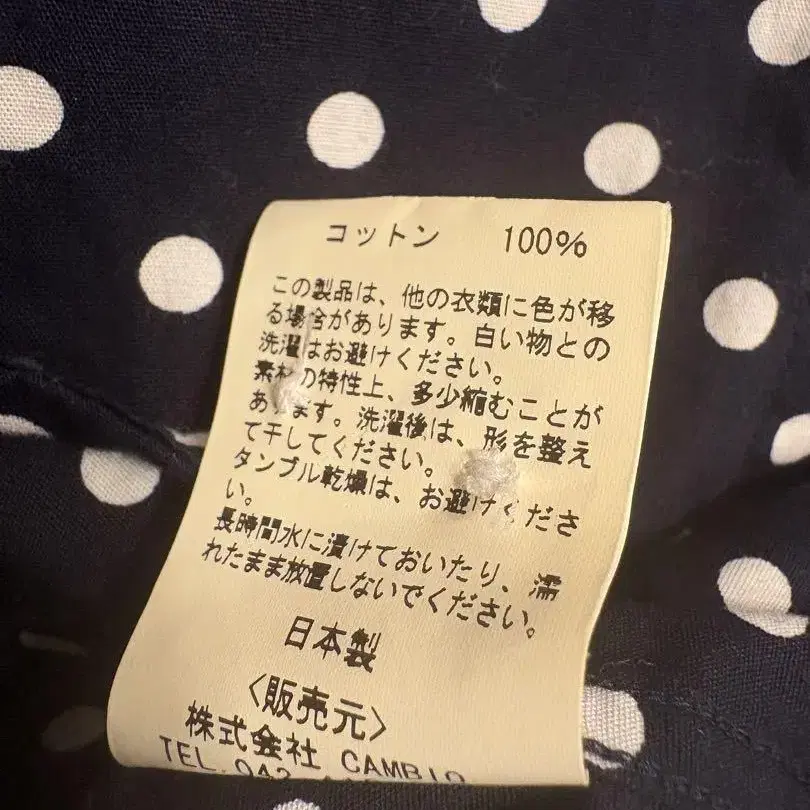 コットン 100%
この製品は、他の衣類に色が移
る場合があります。白い物との
洗濯はお避けください。
素材の特性上、多少縮むことが
あります。洗濯後は、形を整え
て干してください。
タンブル乾燥は、お避けくださ
い。
長時間水に漬けておいたり、濡
れたまま放置しないでください。
日本製
〈販売元〉
株式会社 CAMBIO
TEL.042